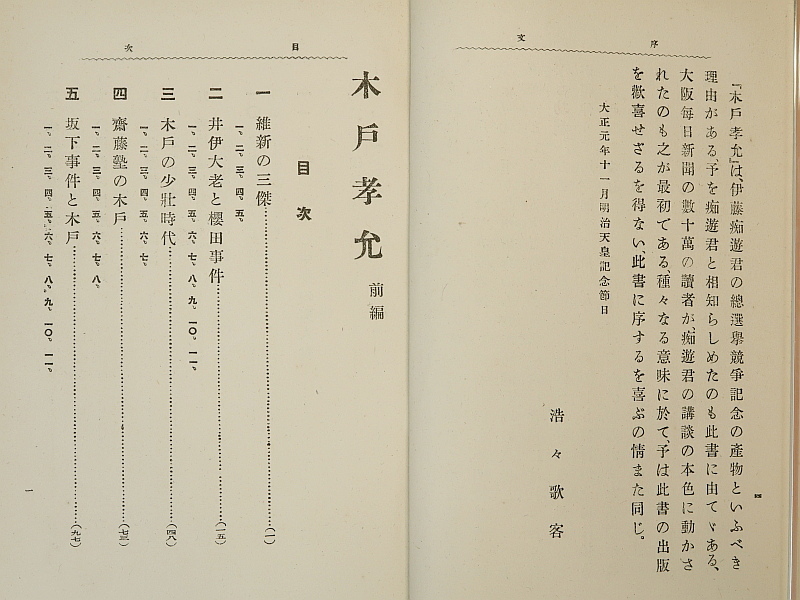 序文
『木戶孝允』は、伊藤痴遊君の總選擧競爭記念の產物といふべき
理由がある、予を痴遊君と相知らしめたのも此書に由てゞある、
大阪每日新聞の數十萬の讀者が、痴遊君の講談の本色に動かさ
れたのも之が最初である、種々なる意味に於て、予は此書の出版
を歡喜せざるを得ない、此書に序するを喜ぶの情また同じ。
大正元年十一月明治天皇記念節日
浩々歌客
四
目次
木戶孝允 前編
目次
一 維新の三傑……(一)
一、二、三、四、五、
二 井伊大老と櫻田事件……(一五)
一、二、三、四、五、六、七、八、九、一〇、一一、
三 木戶の少壯時代……(四八)
一、二、三、四、五、六、七、
四 齋藤塾の木戶……(七三)
一、二、三、四、五、六、七、八、
五 坂下事件と木戶……(九七)
一、二、三、四、五、六、七、八、九、一〇、一一、
一